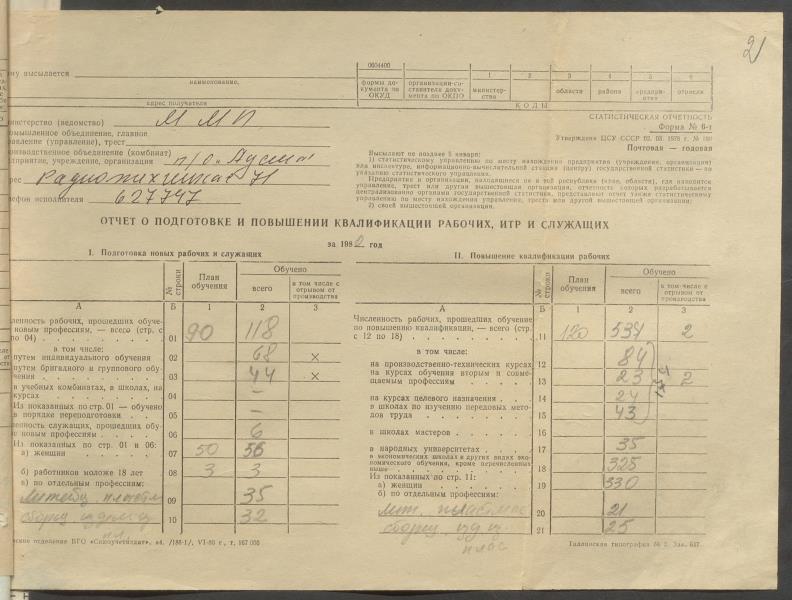 2
му высылается
наименование.
адрес получателя
0604400
формы до-
кумента по
ОКУД
организации-со-
ставителя доку-
мента по ОКПО
1 2 3 4 5 6
министер-
ства
области
района
предприя-
тия
отрасли
КОДЫ
министерство (ведомство) ММП
омышленное объединение, главное
равление (управление), трест
роизводственное объединение (комбинат)
едприятие, учреждение, организация п/о
рес
лефон исполнителя 627797
СТАТИСТИЧЕСКАЯ ОТЧЕТНОСТЬ
Форма № 6-т
Утверждена ЦСУ СССР
Почтовая — годовая
Высылают не позднее 5 января:
1) статистическому управлению по месту нахождения предприятия (учреждения, организации)
или инспектуре, информационно-вычислительной станции (центру) государственной статистики — по
указанию статистического управления.
Предприятия и организации, находящиеся не в той республике (крае, области), где находится
управление, трест или другая вышестоящая организация, отчетность которых разрабатывается
централизованно органами государственной статистики, представляют отчет также статистическому
управлению по месту нахождения управления, треста или другой вышестоящей организации;
2) своей вышестоящей организации.
ОТЧЕТ О ПОДГОТОВКЕ И ПОВЫШЕНИИ КВАЛИФИКАЦИИ РАБОЧИХ, ИТР И СЛУЖАЩИХ
за 1982 год
I. Подготовка новых рабочих и служащих
№ строки
План
обучения
Обучено
всего
в том числе с
отрывом от
производства
А Б 1 2 3
сленность рабочих, прошедших обуче-
новым профессиям, — всего (стр. с
по 04) 01 90 118
в том числе:
путем индивидуального обучения 02 68 ×
путем бригадного и группового обу-
чения 03 44 ×
в учебных комбинатах, в школах, на
курсах 04 —
Из показанных по стр. 01 — обучено
в порядке переподготовки 05 —
ленность служащих, прошедших обу-
е новым профессиям 06 6
Из показанных по стр. 01 и 06:
а) женщин 07 50 56
б) работников моложе 18 лет 08 3 3
в) по отдельным профессиям:
09 35
10 32
II. Повышение квалификации рабочих
№ строки
План
обучения
Обучено
всего
в том числе с
отрывом от
производства
А Б 1 2 3
Численность рабочих, прошедших обучение
по повышению квалификации, — всего (стр.
с 12 по 18) 11 120 534 2
в том числе:
на производственно-технических курсах 12 84
на курсах обучения вторым и совме-
щаемым профессиям 13 23 2
на курсах целевого назначения 14 24
в школах по изучению передовых мето-
дов труда 15 43
в школах мастеров 16
в народных университетах 17 35
в экономических школах и других видах эко-
номического обучения, кроме перечисленных
выше 18 325
Из показанных по стр. 11:
а) женщин 19 330
б) по отдельным профессиям:
20 21
21 25
ское отделение ВГО «Союзучетиздат»
Таллинская типография № 2. Зак. 617